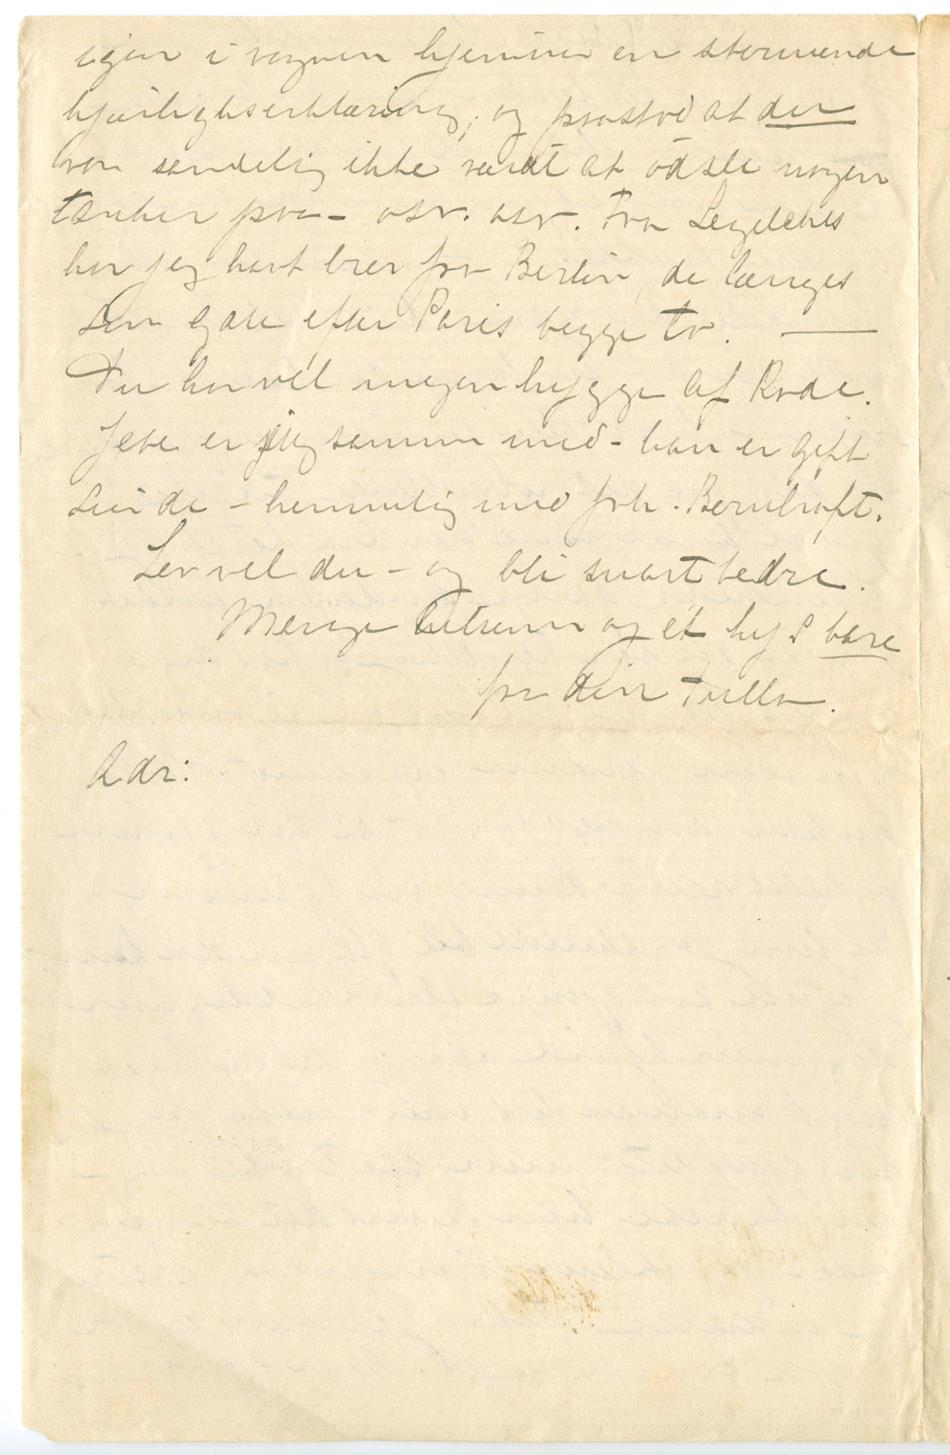 igjen i vognen hjemover en stormende
kjærlighetserklæring, og paastod at du
var sandelig ikke værdt at ødsle nogen
tanker paa – osv. osv. Fra
har jeg havt brev fra Berlin, de længes
som gale efter Paris begge to. —
Du har vel megen hygge af Rode.
Jebe er jeg sammen med – han er gift
Lev vel du – og bli snart bedre.
Mange og et kys bare
fra din Tulla.
Adr: